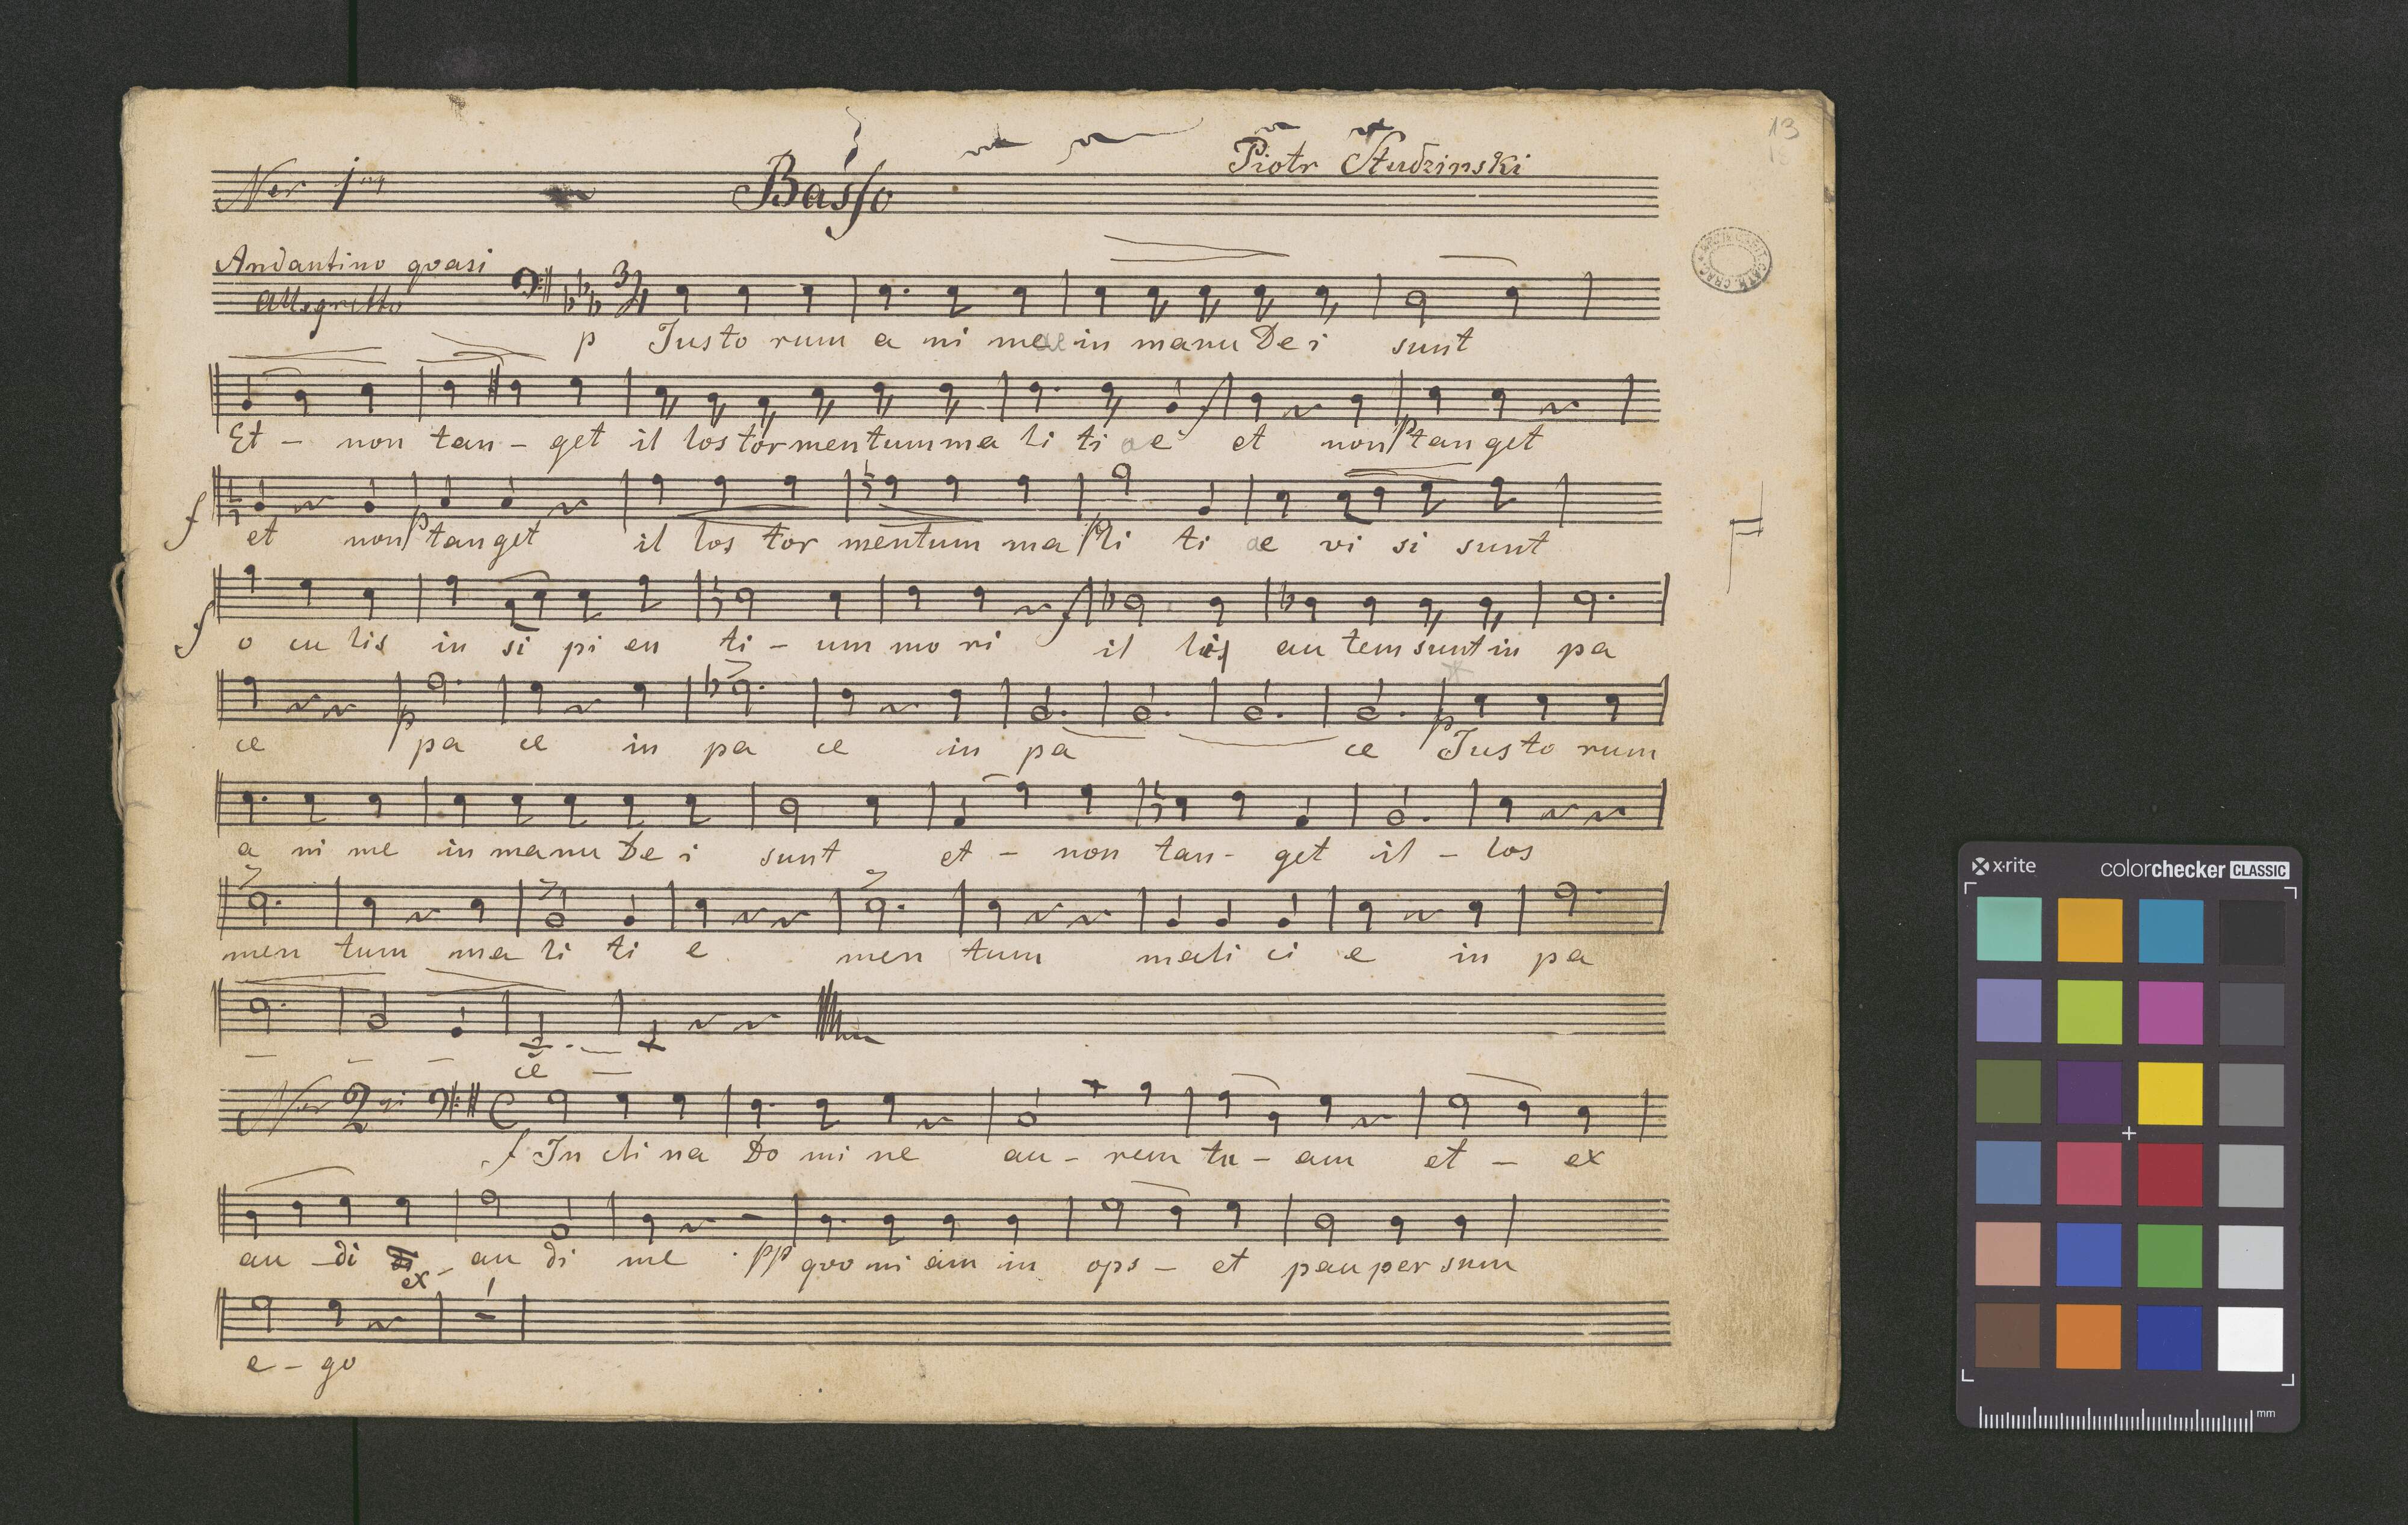 13
Nor 1mi Basso Piotr Studzinski
Andantino qvasi
Allegretto
p Justo rum a ni me ae in manu De i sunt
Et - non tan - get il los tor mentum ma li ti ae f et non p tan get
f et non p tan get il los tor mentum ma p li ti ae vi si sunt
f o cu lis in si pi en ti - um mo ri f il lis au tem sunt in pa
ce p pa ce in pa ce in pa ce p Jus to rum
a ni me in manu De i sunt et - non tan - get il - los
men tum ma li ti e men tum mali ci e in pa
- - - ce -
Nor 2
f In cli na Do mi ne au - rem tu - am et - ex
au - di ex - au di me . pp quo ni am in ops - et pau per sum
e - go
x·rite colorchecker CLASSIC
mm